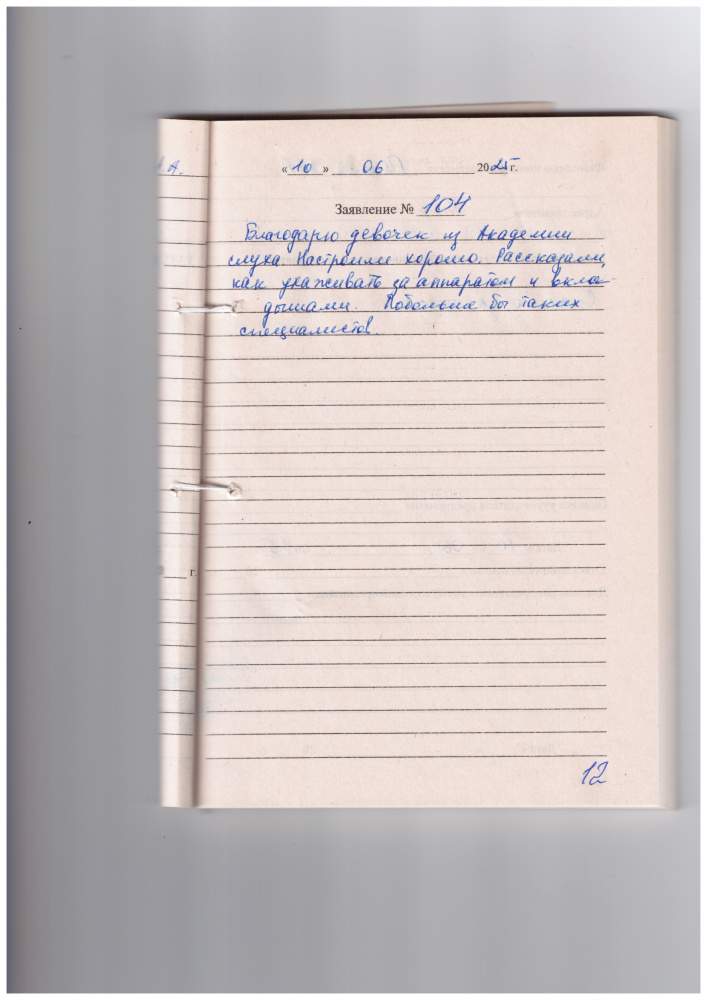 .А.
«10» 06 2025 г.
Заявление № 104
Благодарю девочек из Академии
слуха. Настроили хорошо. Рассказали,
как ухаживать за аппаратом и вкла-
дышами. Побольше бы таких
специалистов.
г.
12